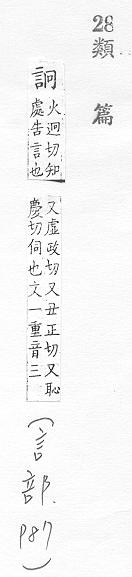 28
類篇
詗
火迥切知
處告言也
又虛政切又丑正切又恥
慶切伺也文一重音三
(言部.P87)